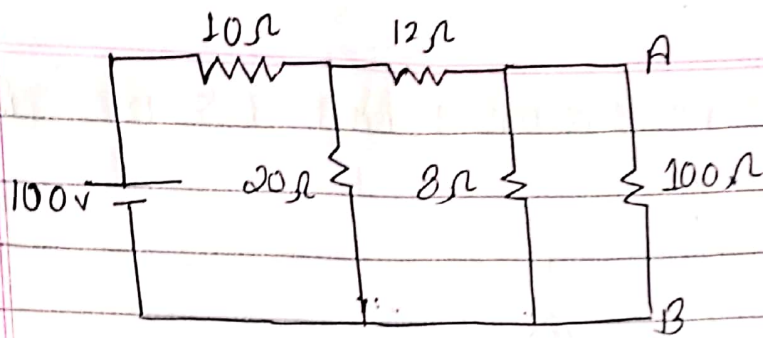 10Ω 12Ω
A
100v 20Ω 8Ω 100Ω
B